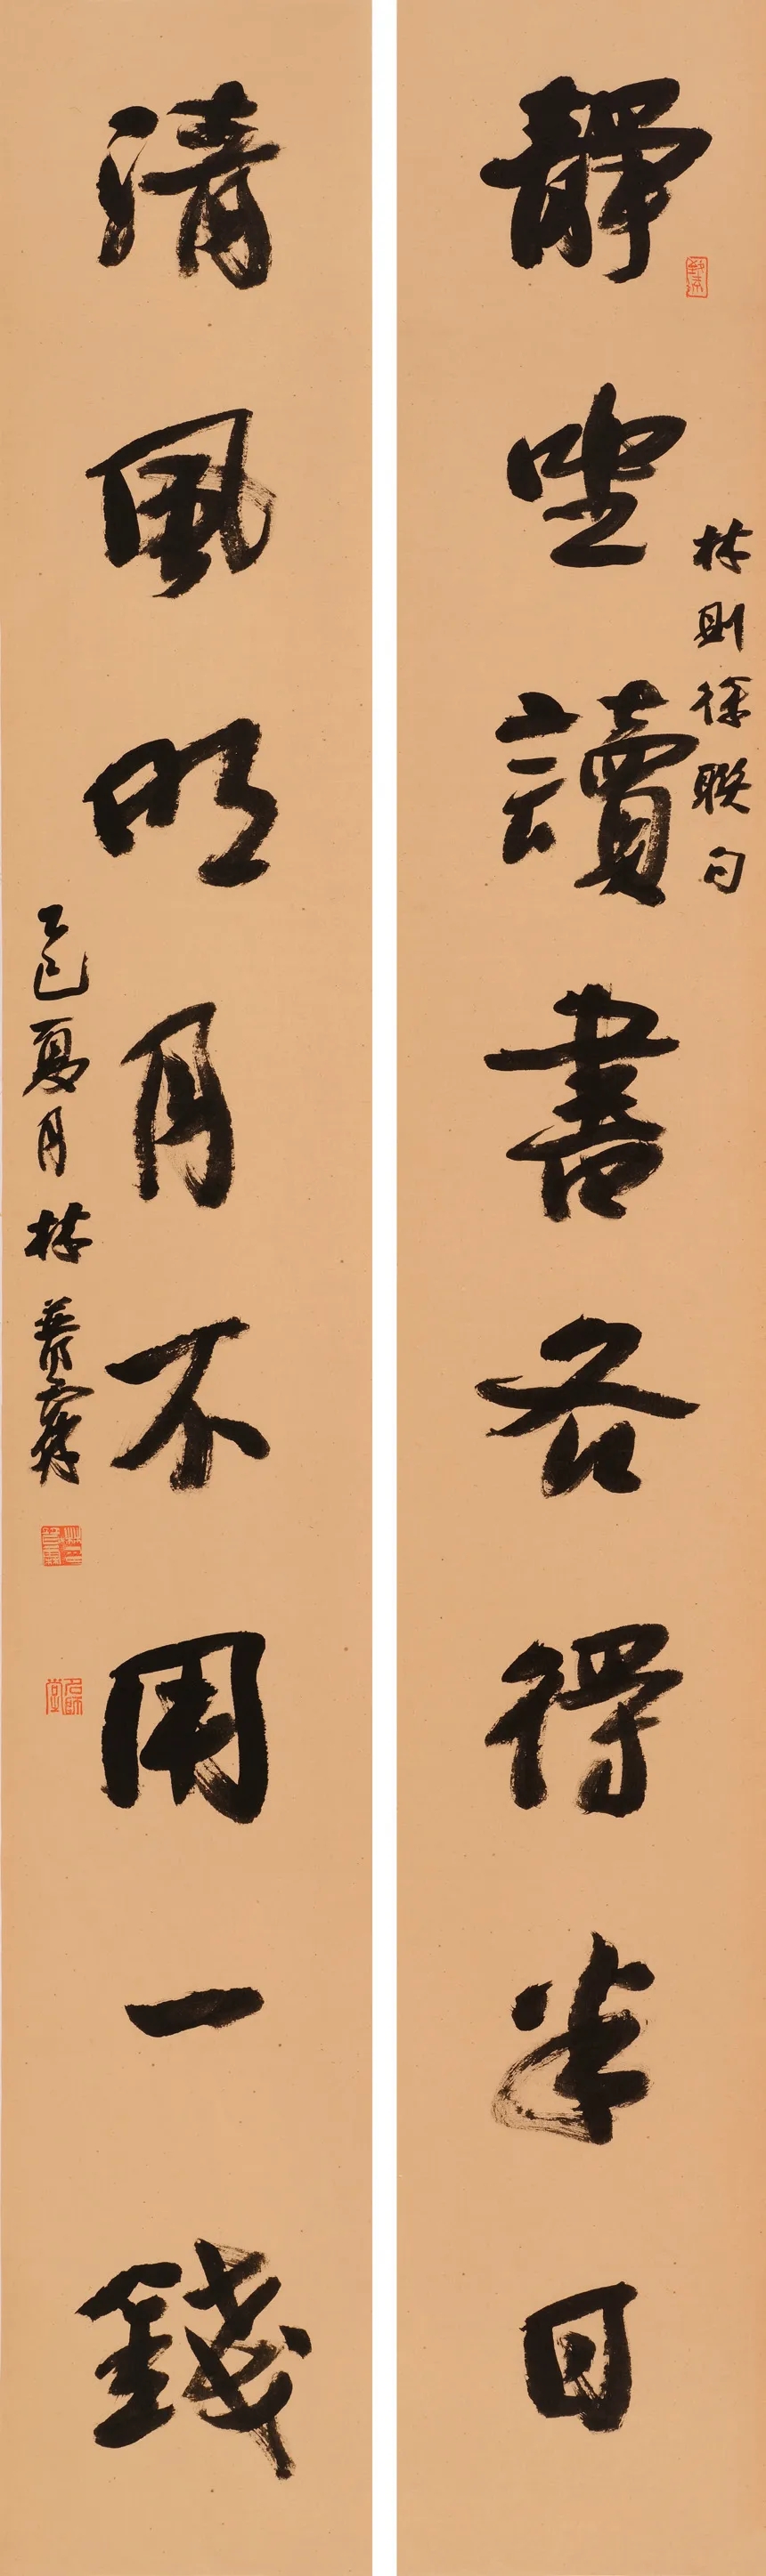 靜坐讀書各得半日
林則徐聯句
清風明月不用一錢
乙巳夏月林